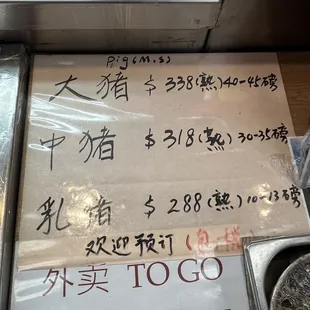 Pig(M.S)
大猪 $338(熟)40-45磅
中猪 $318(熟)30-35磅
乳猪 $288(熟)10-13磅
欢迎预订
外卖 TO GO